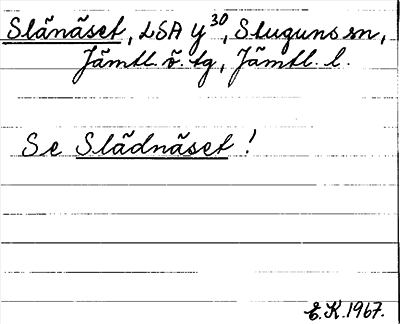 Slänäset, LSA y30, Stuguns sn,
Jämtl. ö. tg, Jämtl. l.
Se Slädnäset!
E.K. 1967.